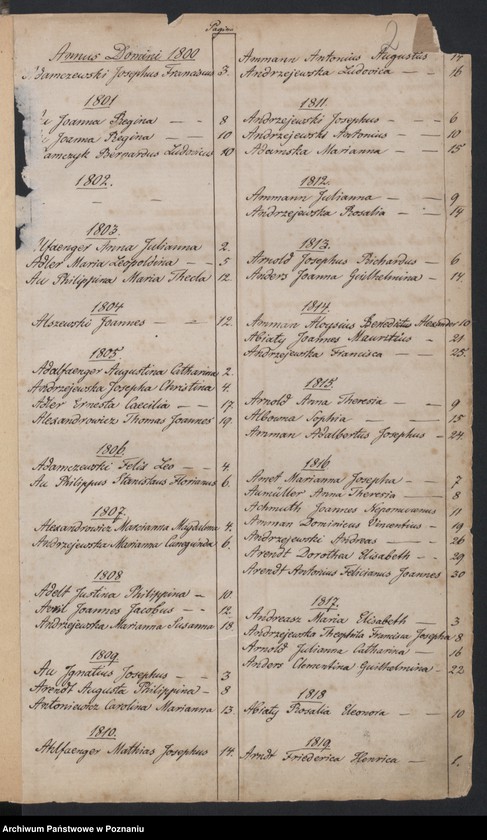 Pagina
2
Annus Domini 1800
Adamczewski Josephus Franciscus 3.
1801
Au Joanna Regina — — 8
Joanna Regina — — 10
Bernardus Ludovicus 10
1802.
— —
1803.
Anna Julianna 2.
Adler Maria Leopoldina — — 5
Au Philippina Maria Thecla 12
1804
Alszewski Joannes — — 12.
1805.
Adalfaenger Augustina Catharina 2.
Andrzejewska Josepha Christina 4.
Adler Ernesta Caecilia — — 17.
Alexandrowicz Thomas Joannes 19.
1806.
Adamczewski Felix Leo — — 4.
Au Philippus Stanislaus Florianus 6.
1807.
Alexandrowicz Marcianna Magdalena 4.
Andrzejewska Marianna Cunegunda 6.
1808
Adelt Justina Philippina — 10.
Avril Joannes Jacobus — — 12.
Andrzejewska Marianna Susanna 18.
1809.
Au Ignatus Josephus — — 3
Arendt Augusta Philippina — 8
Antoniewicz Carolina Marianna 13.
1810.
Ahlfaenger Mathias Josephus 14.
Ammann Antonius Augustus 14
Andrzejewska Ludovica — — 16
1811.
Andrzejewski Josephus — — — 6
Andrzejewski Antonius — — 10
Adamska Marianna — — 15
1812.
Ammann Julianna — — 9
Andrzejewska Rosalia — — 14
1813.
Arnold Josephus Richardus — 6
Anders Joanna Guilhelmina — 14
1814.
Amman Aloysius Benedictus Alexander 10
Abiaty Joannes Mauritius — 21
Andrzejewska Francisca — — 25.
1815.
Arnold Anna Theresia — — 9
Sophia — — 15
Amman Adalbertus Josephus — 24.
1816
Marianna Josepha — 7
Aumüller Anna Theresia 8
Achmuth Joannes Nepomucenus 11
Amman Dominicus Vincentius — 19
Andrzejewski Andreas — — 26
Arendt Dorothea Elisabeth — 29
Arendt Antonius Felicianus Joannes 30
1817.
Andreasz Maria Elisabeth — 3
Andrzejewska Theophila Francisca Josepha 8
Arnold Julianna Catharina — 16
Anders Clementina Guilhelmina — 22
1818
Abiaty Rosalia Eleonora — 10
1819.
Arndt Friederica Henrica — 1.
Archiwum Państwowe w Poznaniu